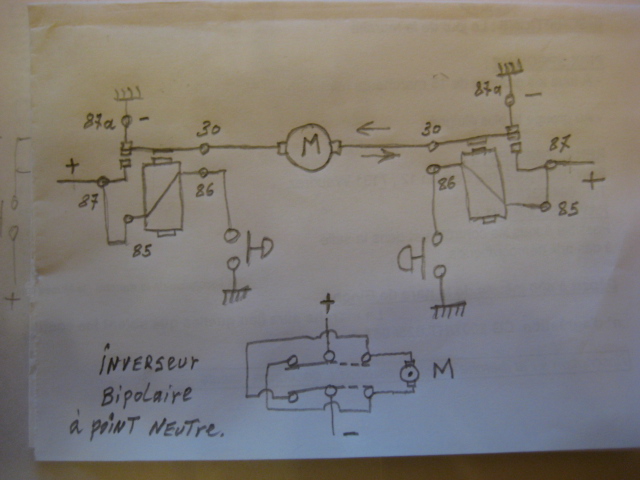 87a - 87a -
30 M 30
+ 87 86 86 87 +
85 85
+
+
M
İNVERSEUR
Bipolaire
à POİNT NEUTRE.
-